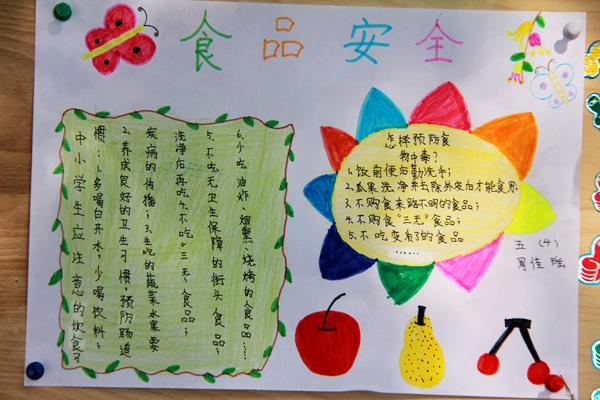 食品安全
中小学生应注意的饮食习
惯:1.多喝白开水,少喝饮料;
2.养成良好的卫生习惯,预防肠道
疾病的传播;3.生吃的蔬菜水果要
洗净后再吃;4.不吃“三无”食品;
5.不吃无卫生保障的街头食品;
6.少吃油炸、烟熏、烧烤的食品……
怎样预防食
物中毒?
1.饮前便后勤洗手;
2.瓜果洗净并去除外皮后才能食用;
3.不购食来路不明的食品;
4.不购食“三无”食品;
5.不吃变了的食品
……
五(4)
周佳瑶